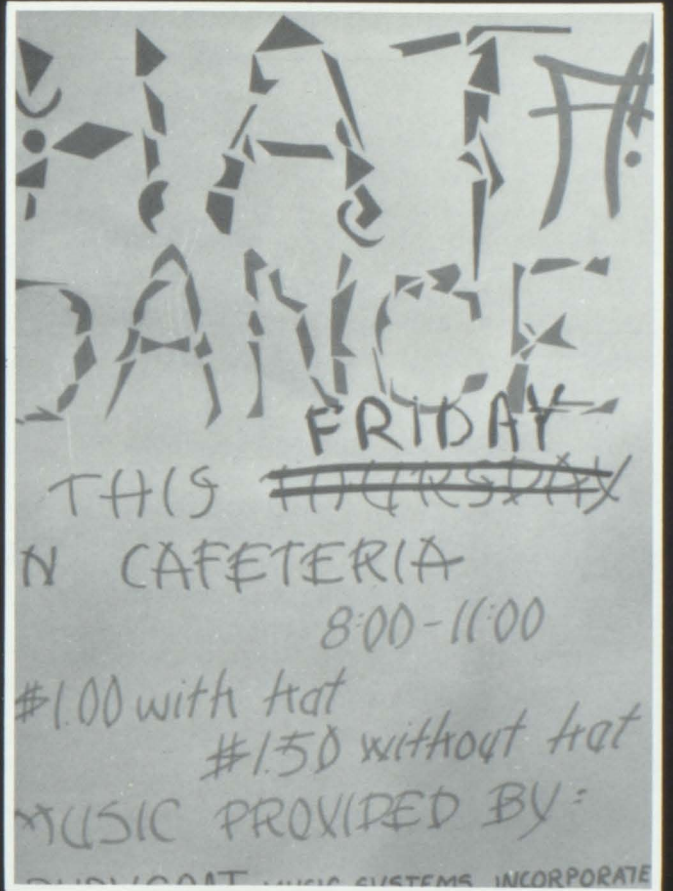 HAT A!
DANCE
FRIDAY
THIS THURSDAY
N CAFETERIA
8:00-11:00
$1.00 with hat
$1.50 without hat
MUSIC PROVIDED BY:
MUSIC SYSTEMS INCORPORATE